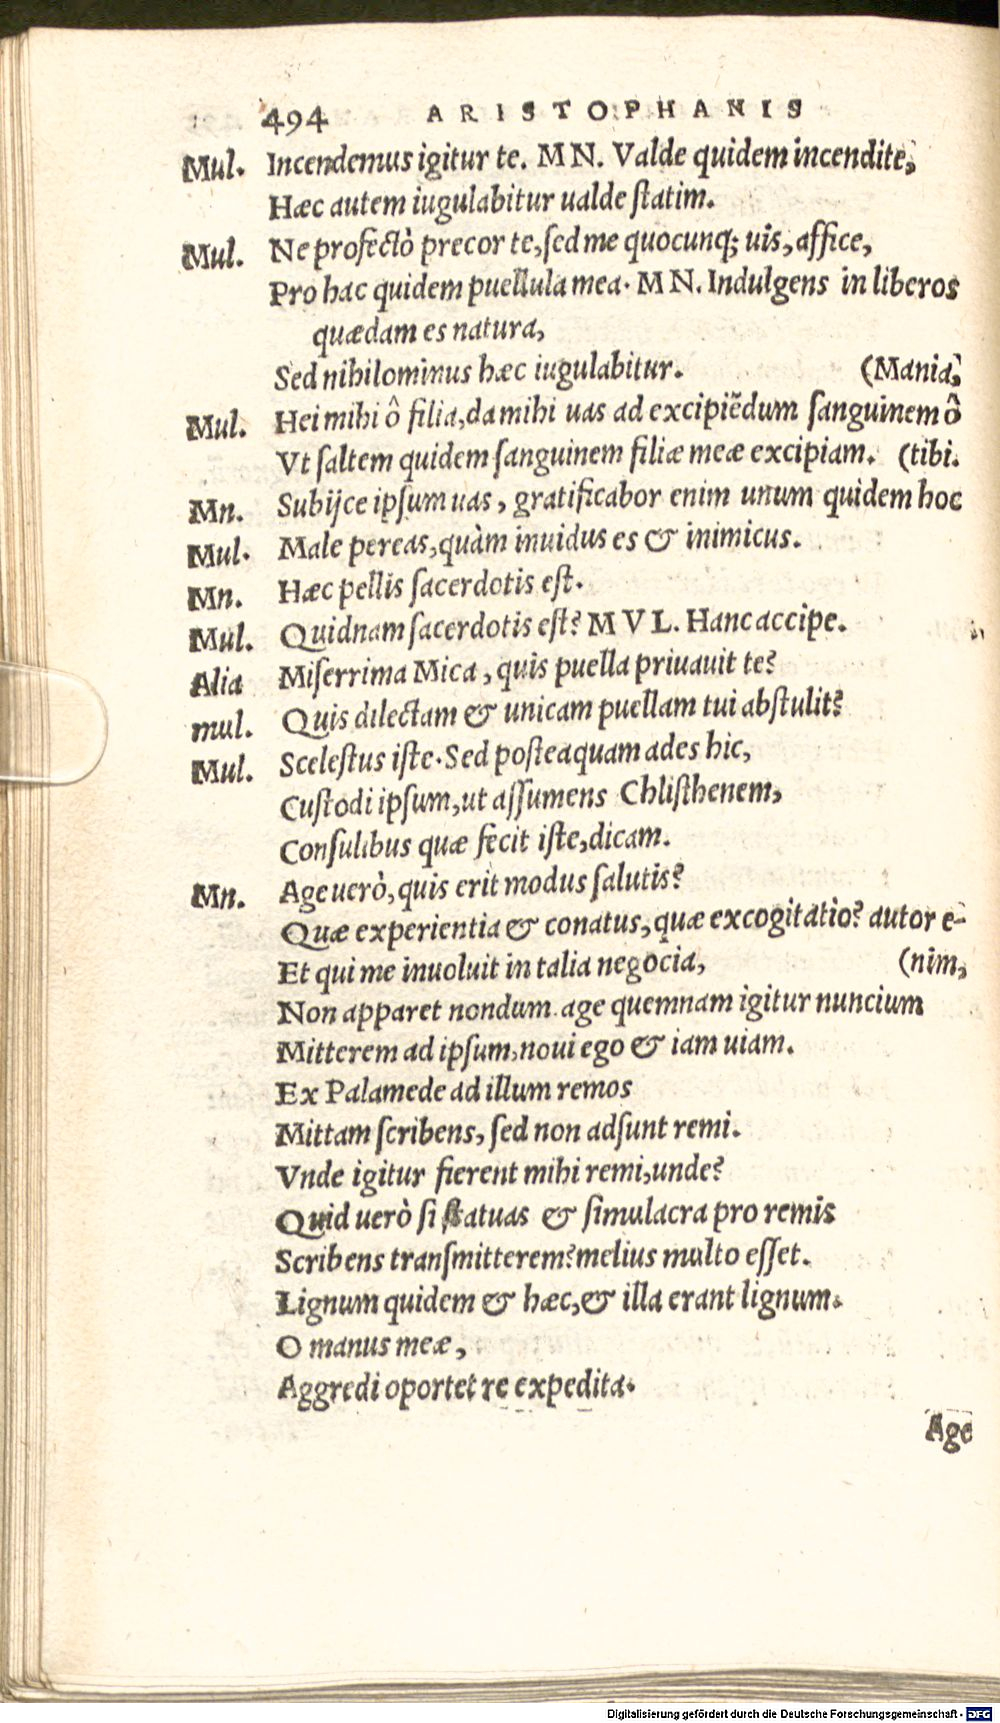 494 ARISTOPHANIS
Mul. Incendemus igitur te. MN. Valde quidem incendite,
Hæc autem iugulabitur ualde ſtatim.
Mul. Ne profectò precor te, ſed me quocunq; uis, affice,
Pro hac quidem puellula mea. MN. Indulgens in liberos
quædam es natura,
Sed nihilominus hæc iugulabitur. (Mania,
Mul. Hei mihi ô filia, da mihi uas ad excipiẽdum ſanguinem ô
Vt ſaltem quidem ſanguinem filiæ meæ excipiam. (tibi.
Mn. Subijce ipſum uas, gratificabor enim unum quidem hoc
Mul. Male pereas, quàm inuidus es & inimicus.
Mn. Hæc pellis ſacerdotis eſt.
Mul. Quidnam ſacerdotis eſt? MVL. Hanc accipe.
Alia Miſerrima Mica, quis puella priuauit te?
mul. Quis dilectam & unicam puellam tui abſtulit?
Mul. Sceleſtus iſte. Sed poſteaquam ades hic,
Cuſtodi ipſum, ut aſſumens Chliſthenem,
Conſulibus quæ fecit iſte, dicam.
Mn. Age uerò, quis erit modus ſalutis?
Quæ experientia & conatus, quæ excogitatio? autor e-
Et qui me inuoluit in talia negocia, (nim,
Non apparet nondum. age quemnam igitur nuncium
Mitterem ad ipſum, noui ego & iam uiam.
Ex Palamede ad illum remos
Mittam ſcribens, ſed non adſunt remi.
Vnde igitur fierent mihi remi, unde?
Quid uerò ſi ſtatuas & ſimulacra pro remis
Scribens tranſmitterem? melius multo eſſet.
Lignum quidem & hæc, & illa erant lignum.
O manus meæ,
Aggredi oportet re expedita.
Age
Digitalisierung gefördert durch die Deutsche Forschungsgemeinschaft - DFG